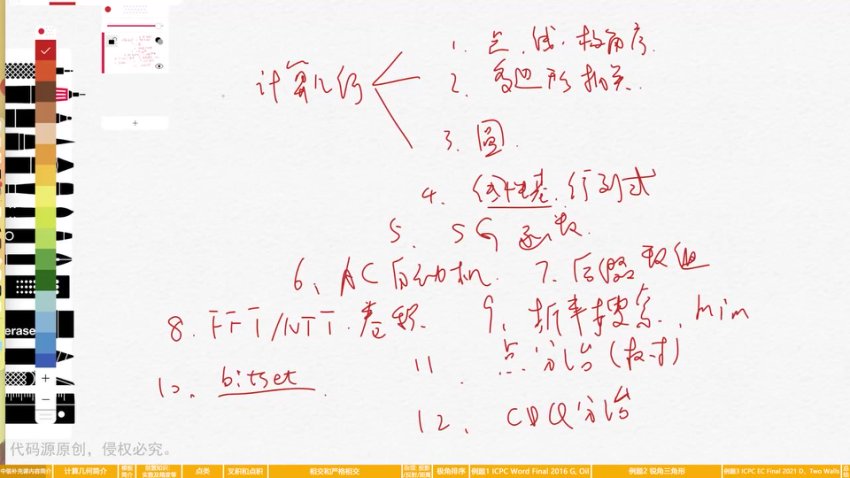 计算几何
1. 点.线.极角序.
2. 多边形相关.
3. 圆.
4. 线性基.行列式
5. SG函数.
6、AC自动机.
7. 后缀数组
8. FFT/NTT.卷积.
9、折半搜索、mim
10、bitset.
11、点分治(树)
12、CDQ分治
erase
代码源原创，侵权必究。
计算几何简介
点类
叉积和点积
相交和严格相交
极角排序
例题1 ICPC Word Final 2016 G, Oil
例题2 锐角三角形
例题3 ICPC EC Final 2021 D, Two Walls